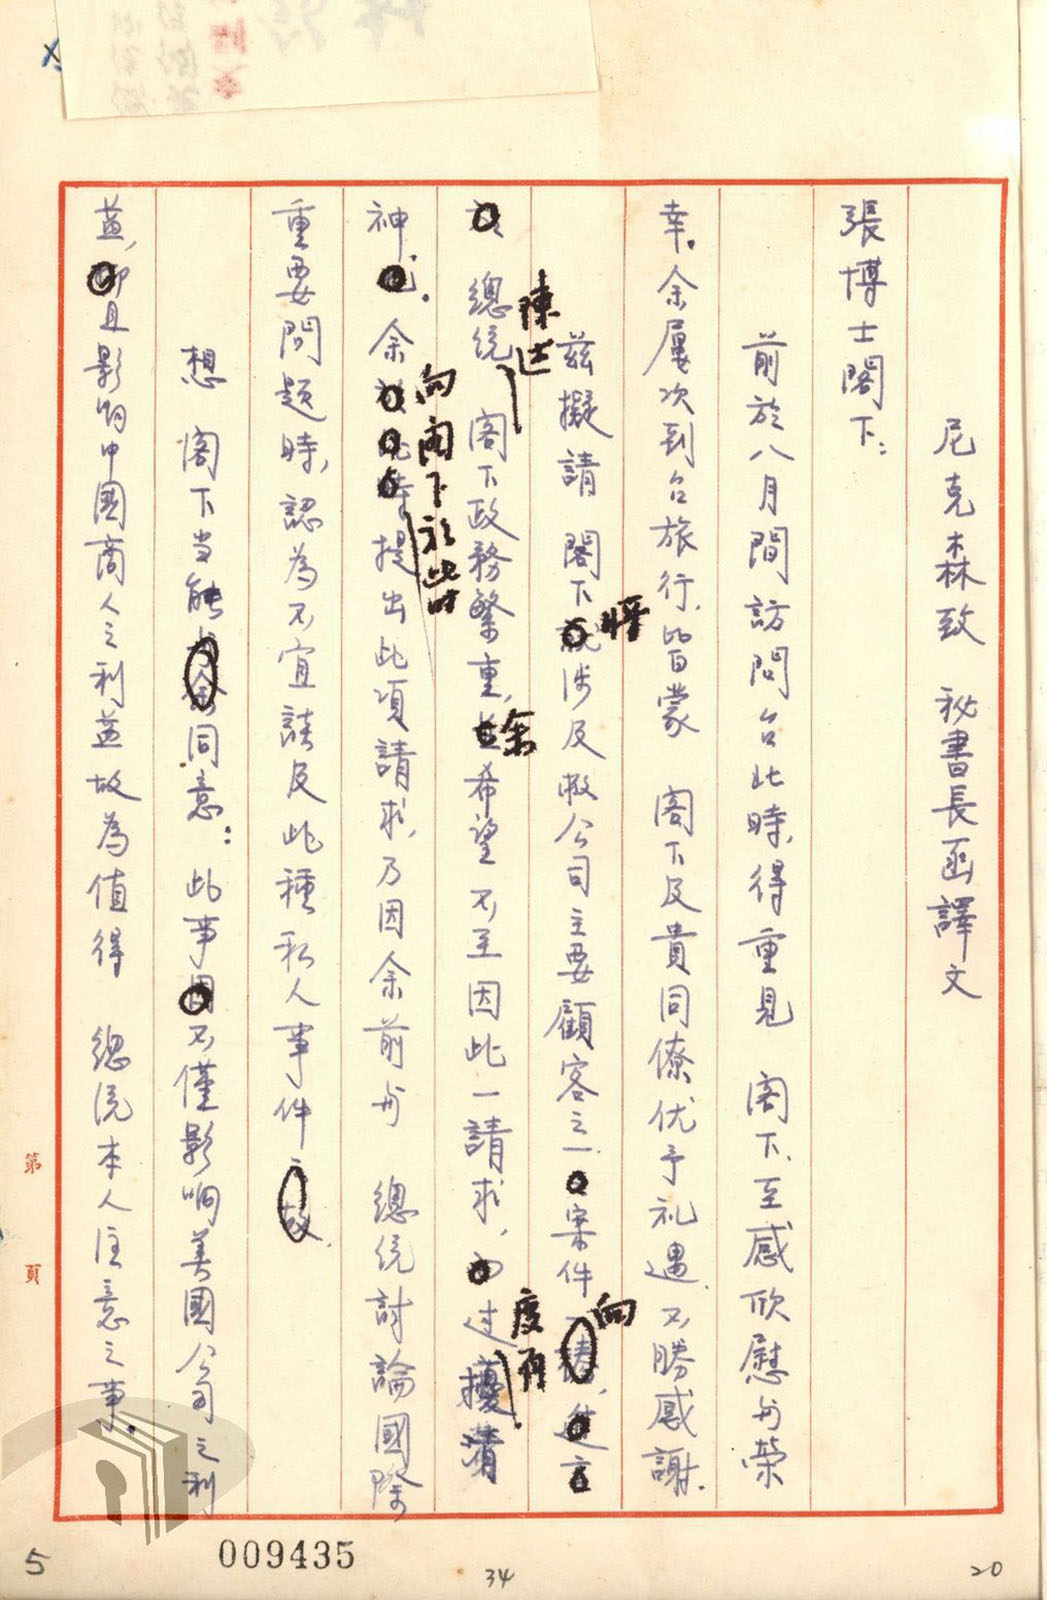 尼克森致 秘書長函譯文
張博士閣下：
前於八月間訪問台北時，得重見 閣下，至感欣慰與榮
幸。余屢次到台旅行，皆蒙 閣下及貴同僚优予礼遇，不勝感謝。
茲擬請 閣下將涉及敝公司主要顧客之一案件向
陳述
總統 閣下政務繁重，余希望不至因此一請求，過度有擾清
神。余向閣下於此時提出此項請求，乃因余前與 總統討論國際
重要問題時，認為不宜談及此種私人事件。
想 閣下当能同意：此事不僅影响美國公司之利
益，且影响中國商人之利益故為值得 總統本人注意之事。
第 頁
5
009435
34
20